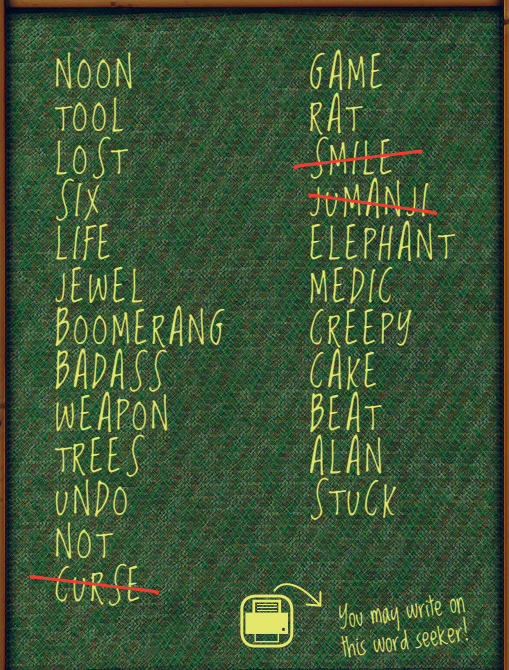 NOON
TOOL
LOST
SIX
LIFE
JEWEL
BOOMERANG
BADASS
WEAPON
TREES
UNDO
NOT
CURSE
GAME
RAT
SMILE
JUMANJI
ELEPHANT
MEDIC
CREEPY
CAKE
BEAT
ALAN
STUCK
You may write on
this word seeker!